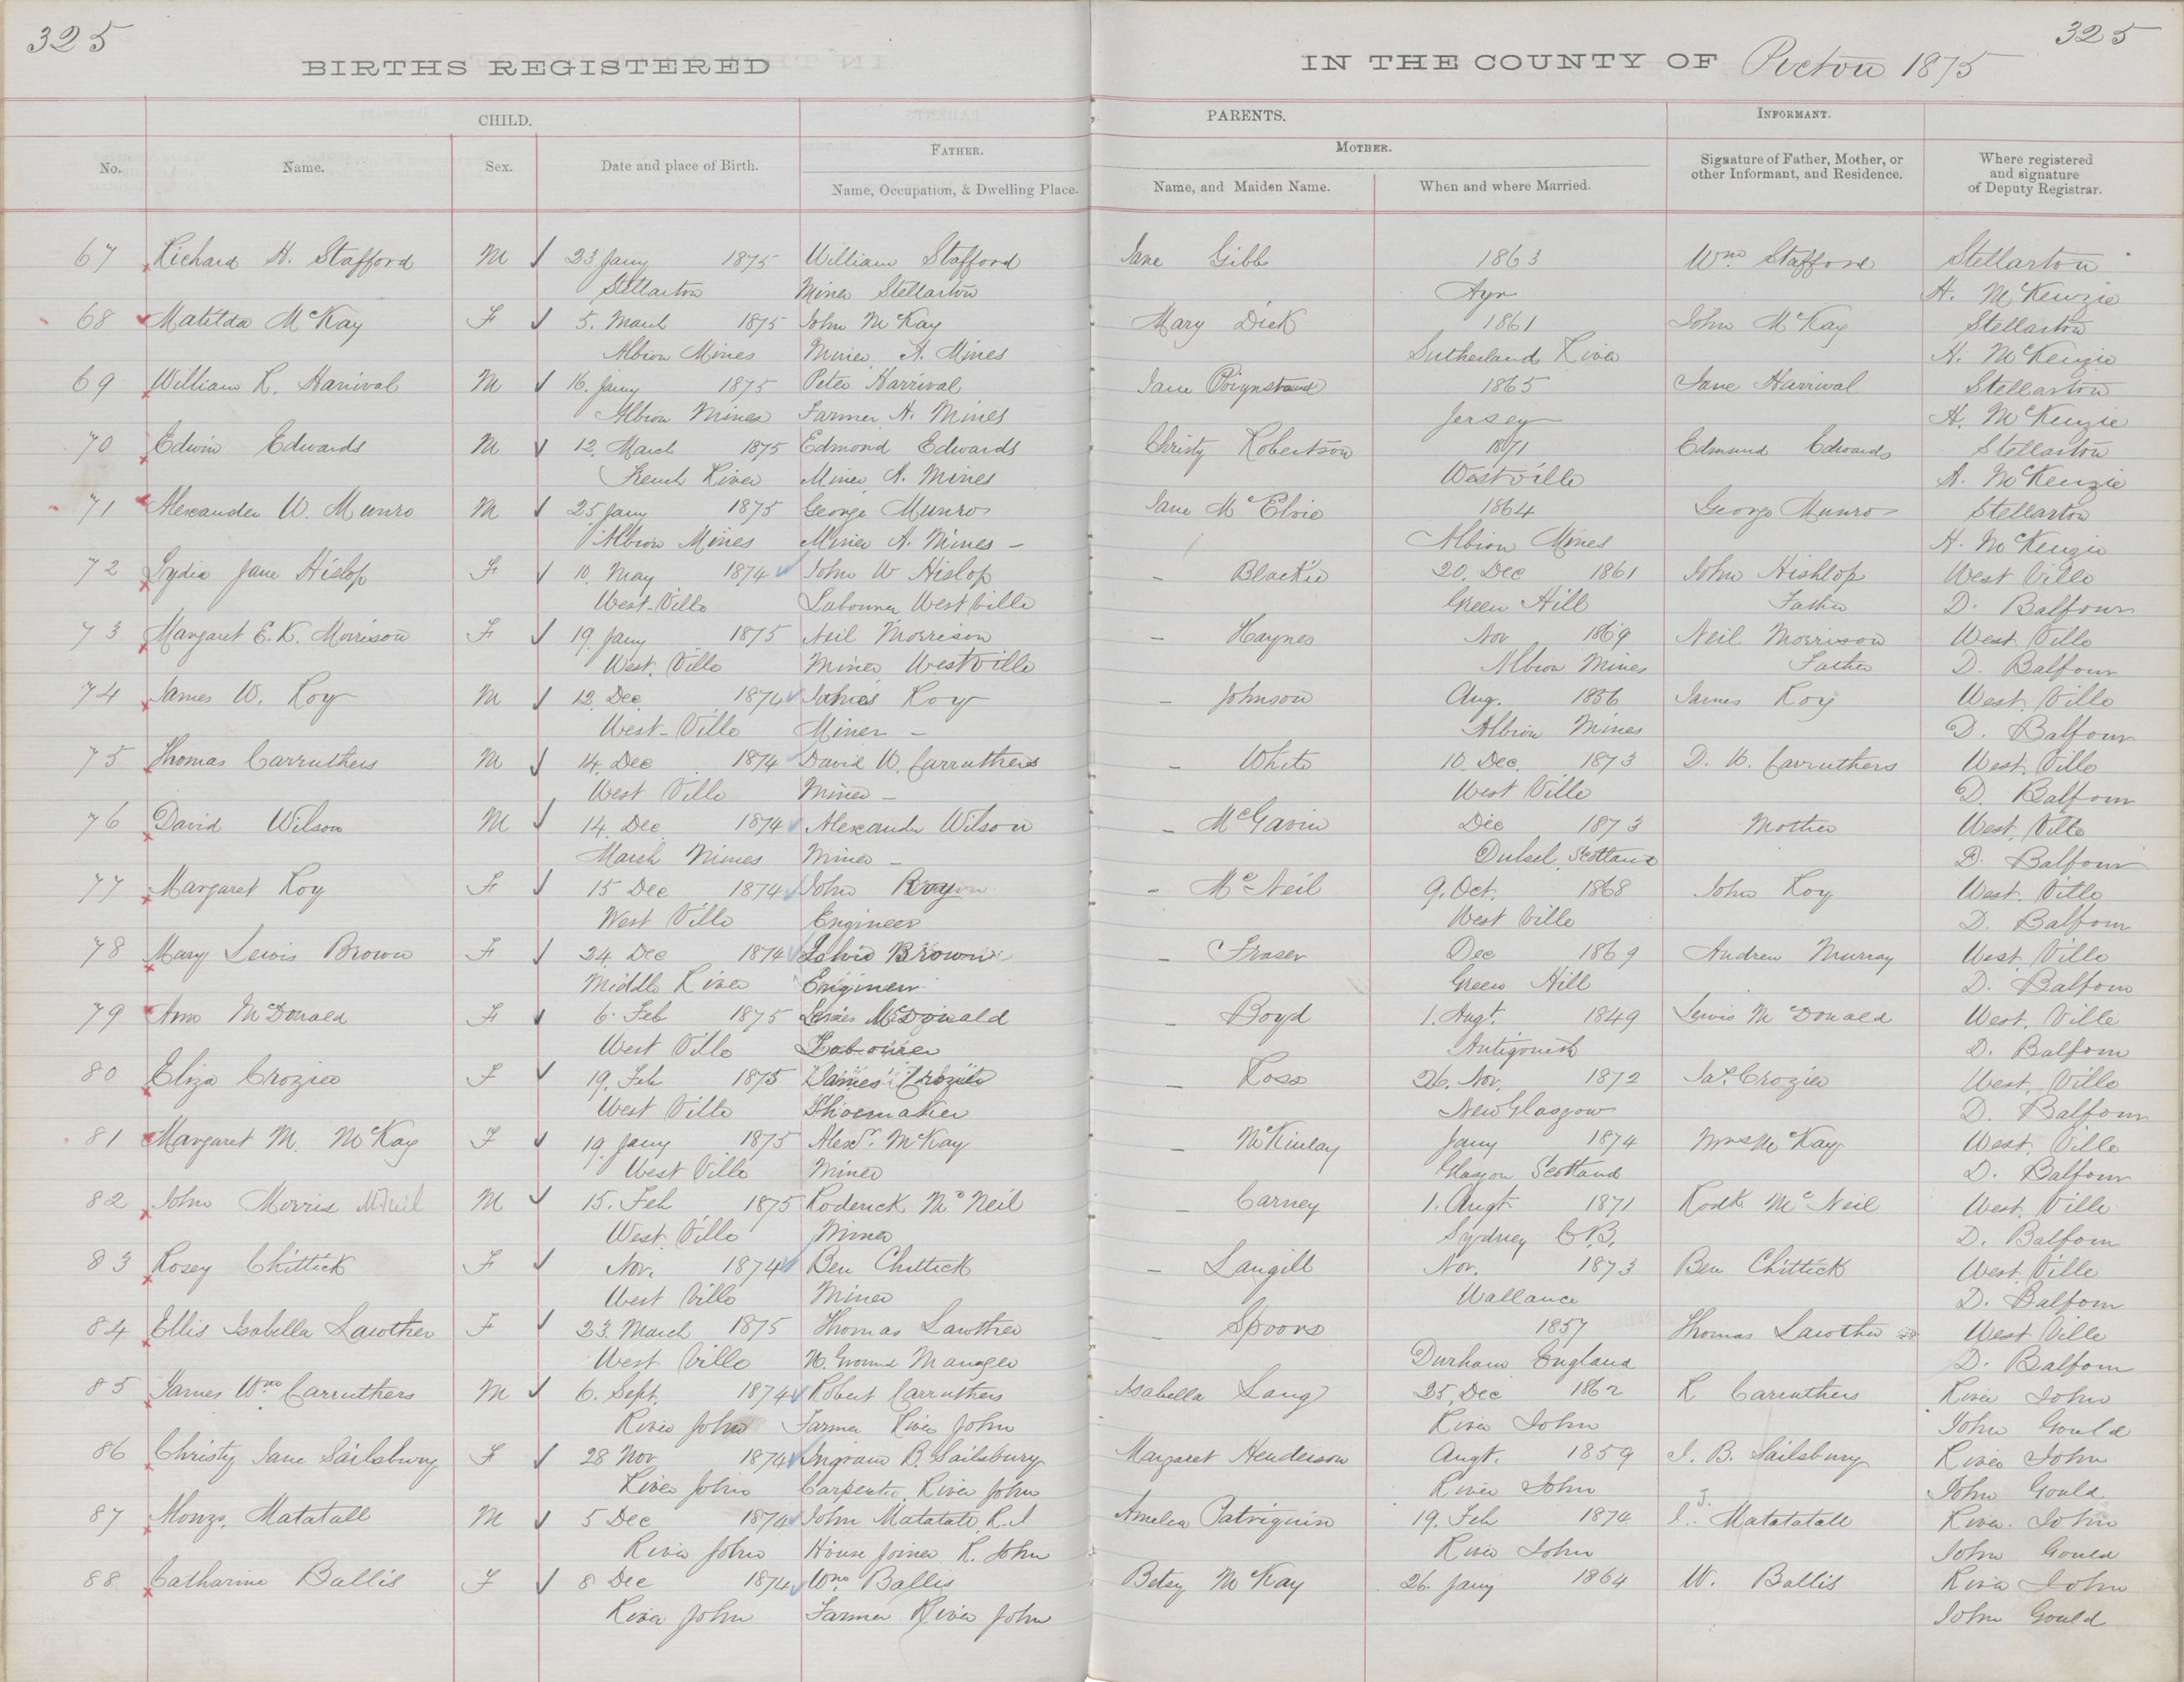 325
325
BIRTHS REGISTERED
IN THE COUNTY OF Pictou 1875
CHILD.
PARENTS.
INFORMANT.
No.
Name.
Sex.
Date and place of Birth.
FATHER.
Name, Occupation, & Dwelling Place.
MOTHER.
Name, and Maiden Name.
When and where Married.
Signature of Father, Mother, or
other Informant, and Residence.
Where registered
and signature
of Deputy Registrar.
67 Richard H. Stafford M 23 Jany 1875 William Stafford Jane Gibb 1863 Wm Stafford Stellarton
Stellarton Miner Stellarton Ayr H. McKenzie
68 Matilda McKay F 5. March 1875 John McKay Mary Dick 1861 John McKay Stellarton
Albion Mines Miner A. Mines Sutherland River H. McKenzie
69 William R. Harrival M 16. Jany 1875 Peter Harrival Jane 1865 Jane Harrival Stellarton
Albion Mines Farmer A. Mines Jersey H. McKenzie
70 Edwin Edwards M 12. March 1875 Edmond Edwards Christy Robertson 1871 Edmund Edwards Stellarton
French River Miner A. Mines Westville H. McKenzie
71 Alexander W. Munro M 25 Jany 1875 George Munro Jane McElvie 1864 George Munro Stellarton
Albion Mines Miner A. Mines – Albion Mines H. McKenzie
72 Lydia Jane Hislop F 10. May 1874 John W Hislop – Blackie 20. Dec 1861 John Hishlop West Ville
West-Ville Labourer West Ville Green Hill Father D. Balfour
73 Margaret E. K. Morrison F 19. Jany 1875 Neil Morrison – Haynes Nov 1869 Neil Morrison West Ville
West. Ville Miner Westville Albion Mines Father D. Balfour
74 James W. Roy M 12. Dec 1874 James Roy – Johnson Aug. 1856 James Roy West. Ville
West-Ville Miner – Albion Mines D. Balfour
75 Thomas Carruthers M 14. Dec 1874 David W. Carruthers – White 10. Dec. 1873 D. W. Carruthers West. Ville
West Ville Miner – West Ville D. Balfour
76 David Wilson M 14. Dec 1874 Alexander Wilson – McGavin Dec 1873 Mother West. Ville
Marsh Mines Miner – Scotland D. Balfour
77 Margaret Roy F 15 Dec 1874 John Roy – McNeil 9. Oct. 1868 John Roy West. Ville
West Ville Engineer West Ville D. Balfour
78 Mary Lewis Brown F 24. Dec 1874 Brown – Fraser Dec 1869 Andrew Murray West. Ville
Middle River Engineer Green Hill D. Balfour
79 Ann McDonald F 6. Feb 1875 McDonald – Boyd 1. Augt. 1849 Lewis McDonald West. Ville
West Ville Labourer Antigonish D. Balfour
80 Eliza Crozier F 19. Feb 1875 James Crozier – Ross 26. Nov. 1872 Jas. Crozier West. Ville
West Ville Shoemaker New Glasgow D. Balfour
81 Margaret M. McKay F 19. Jany 1875 Alexr. McKay – McKinlay Jany 1874 Mrs McKay West. Ville
West Ville Miner Glasgow Scotland D. Balfour
82 John Morris McNeil M 15. Feb 1875 Roderick McNeil – Carney 1. Augt 1871 Rodk. McNeil West. Ville
West. Ville Miner Sydney C.B. D. Balfour
83 Rosey Chittick F Nov. 1874 Ben Chittick – Langill Nov. 1873 Ben Chittick West. Ville
West Ville Miner Wallance D. Balfour
84 Ellis Isabella Lawther F 23. March 1875 Thomas Lawther – Spoors 1857 Thomas Lawther West Ville
West Ville U. Ground Manager Durham England D. Balfour
85 James Wm. Carruthers M 6. Sept. 1874 Robert Carruthers Isabella Lang 25. Dec 1862 R Carruthers River John
River John Farmer River John River John John Gould
86 Christy Jane Sailsbury F 28 Nov 1874 Ingram B. Sailsbury Margaret Henderson Augt. 1859 I. B. Sailsbury River John
River John Carpenter River John River John John Gould
87 Alonzo. Matatall M 5 Dec 1874 John Matatall R. J Amelia Patriquin 19. Feb 1874 J. Matatatall River. John
River John House Joiner R. John River John John Gould
88 Catharine Ballis F 8 Dec 1874 Wm Ballis Betsy McKay 26. Jany 1864 W. Ballis River John
River John Farmer River John John Gould